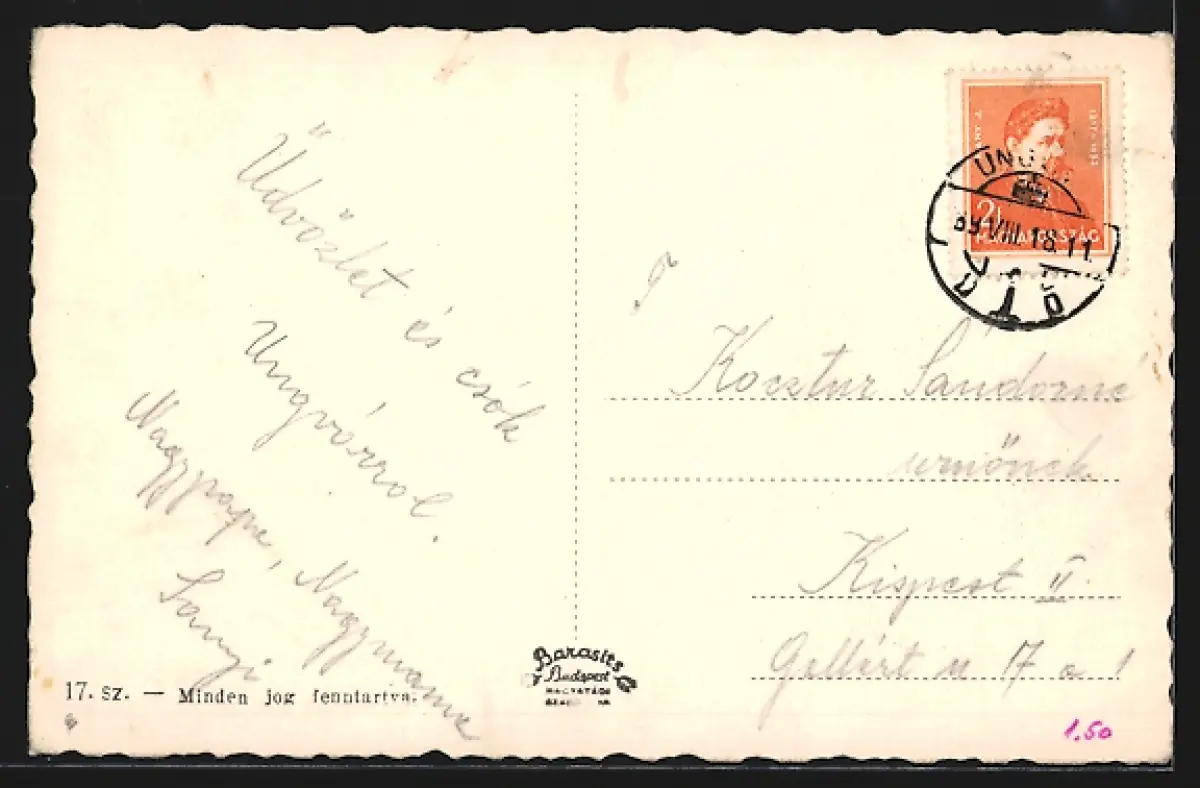 Üdvözlet és csók
Ungvárrol.
Nagypapa, Nagymama
Sanyi
17. sz. — Minden jog fenntartva.
Barasits
Budapest
MAGYARÁZÓ
MAGYARORSZÁG
39.VIII.18.11
T
Kocztur Sándorné
urnőnek
Kispest II.
Gellért u 17 a!
1.50